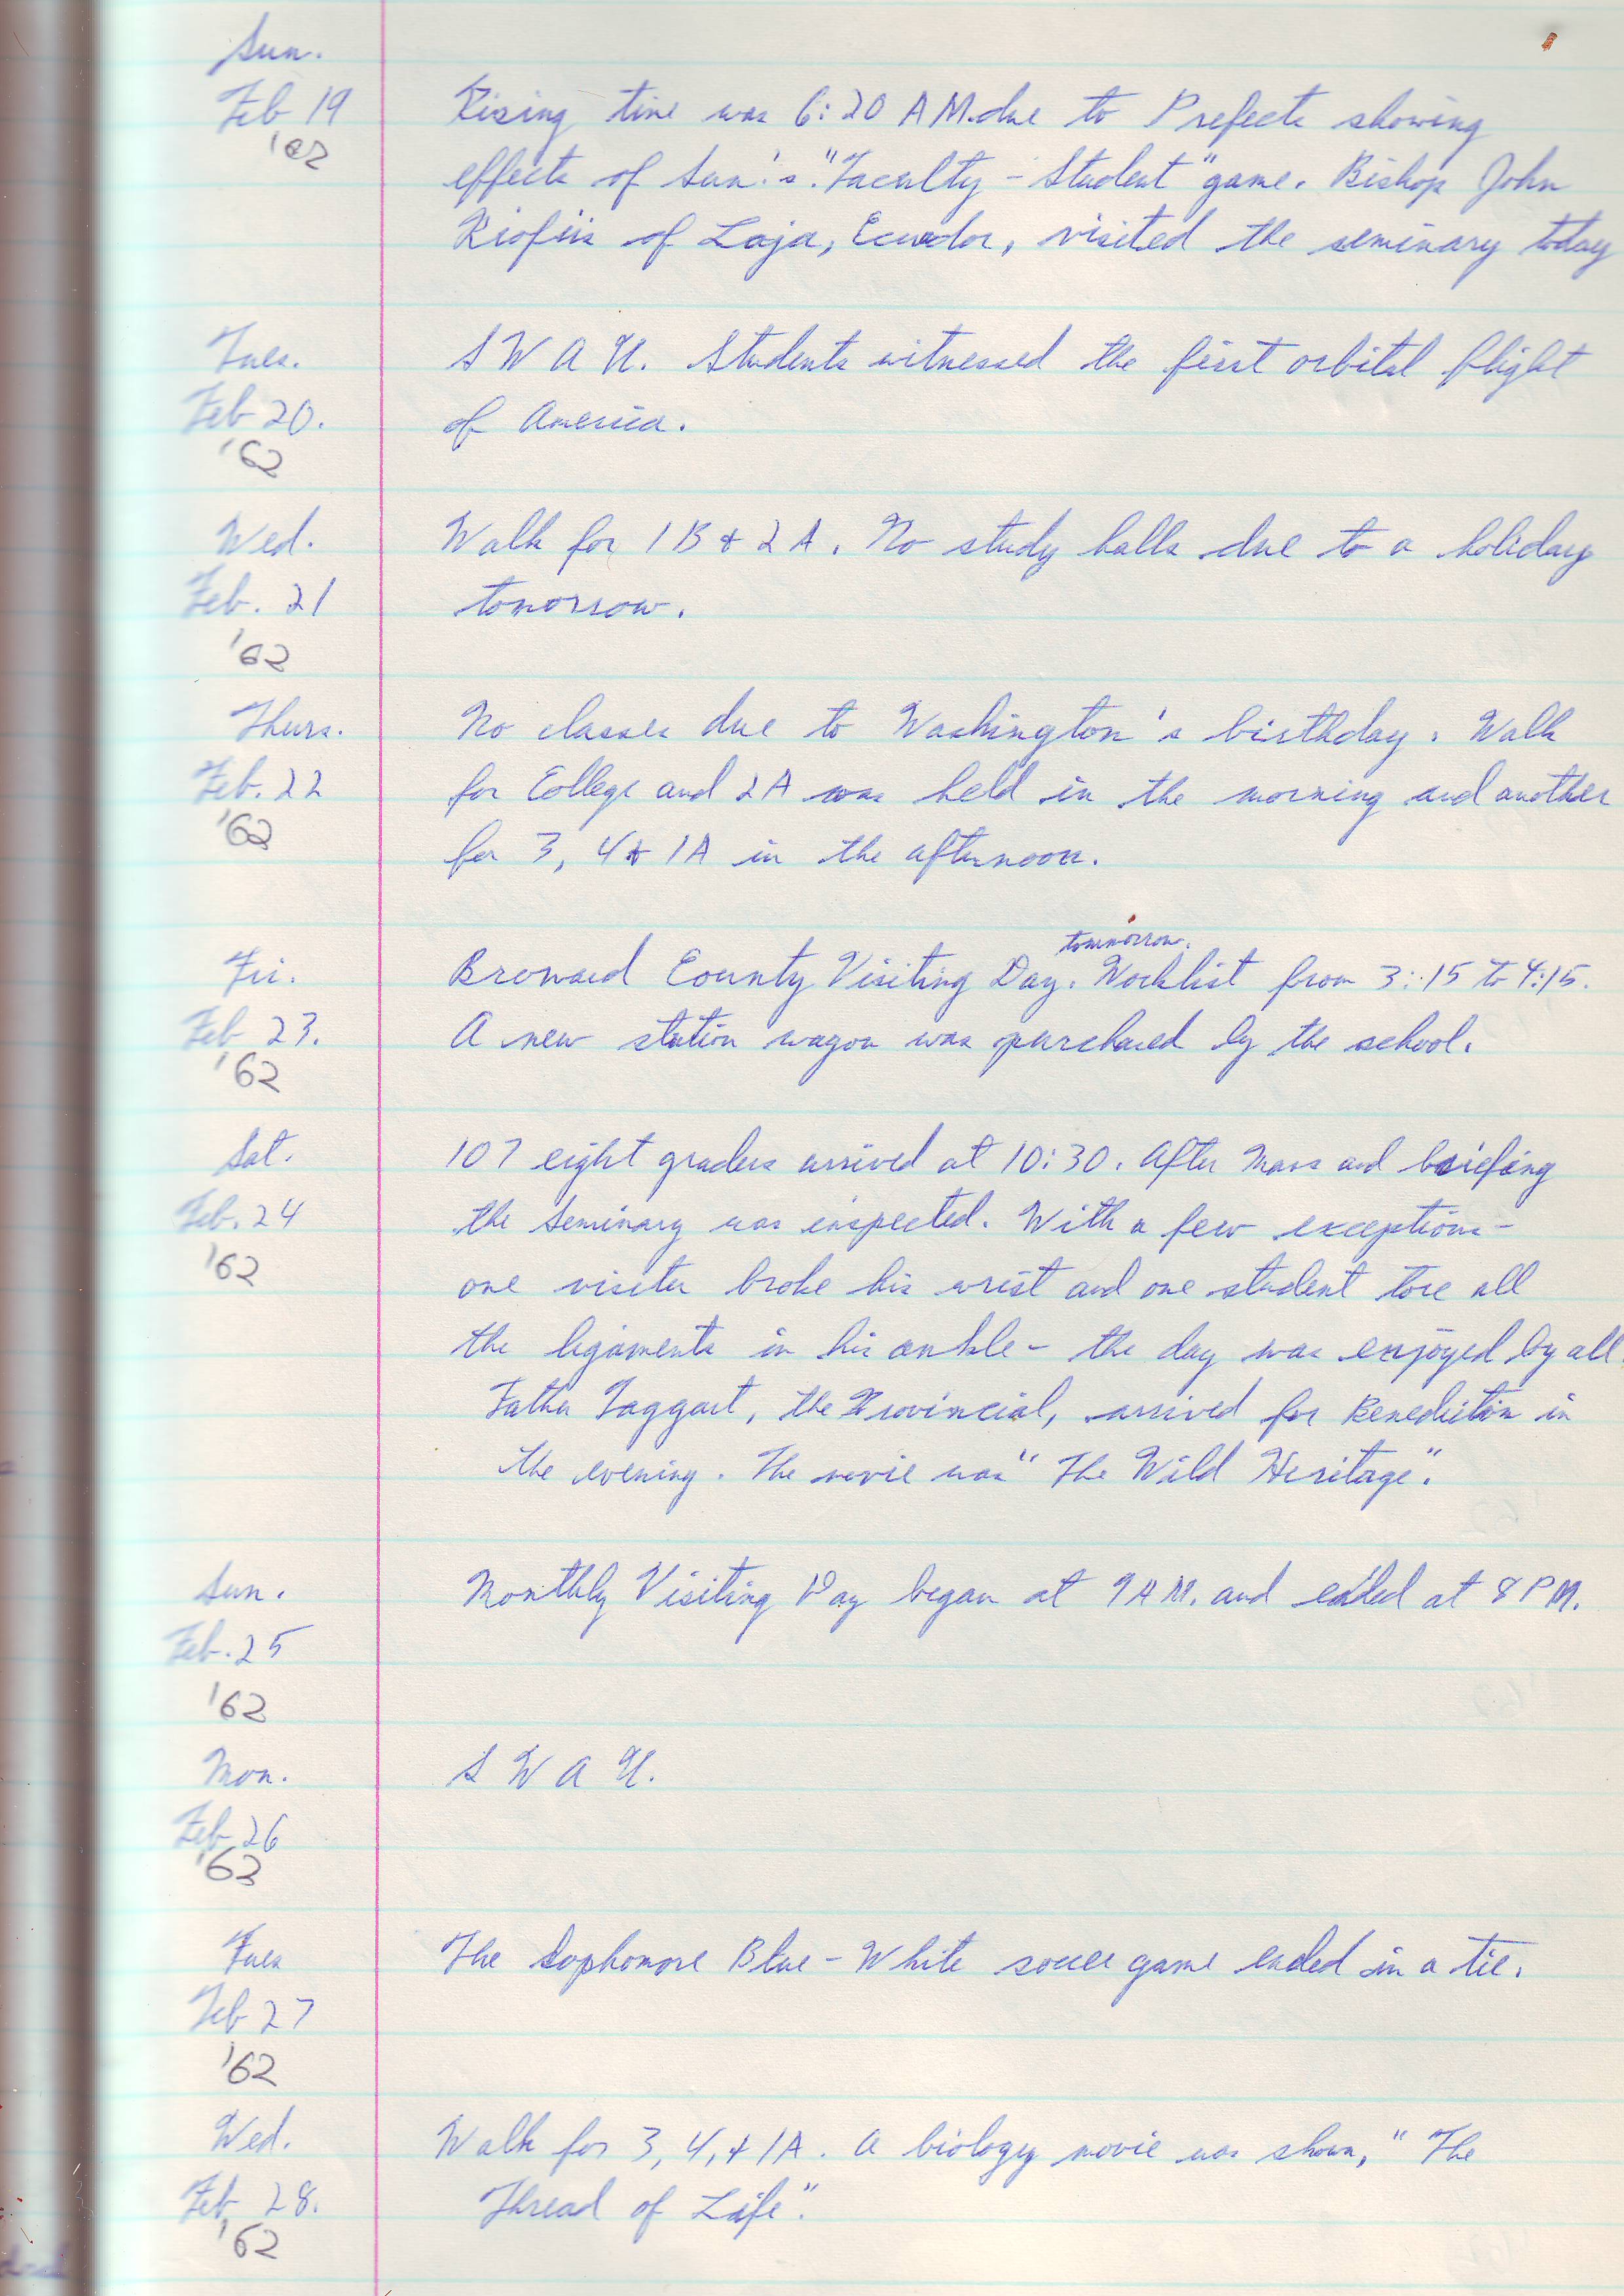 Sun.
Feb 19 Rising time was 6:20 A M. due to Prefects showing
'62
effects of Sun.'s "Faculty - Student" game. Bishop John
of Loja, Ecuador, visited the seminary today
Tues. S W A U. Students witnessed the first orbital flight
Feb 20. of America.
'62
Wed. Walk for 1 B & 2 A. No study halls due to a holiday
Feb. 21 tomorrow.
'62
Thurs. No classes due to Washington's birthday. Walk
Feb. 22 for College and 2A was held in the morning and another
'62 for 3, 4 & 1A in the afternoon.
tommorrow.
Fri. Broward County Visiting Day. Worklist from 3:15 to 4:15.
Feb 23. A new station wagon was purchased by the school.
'62
Sat. 107 eight graders arrived at 10:30. After Mass and briefing
Feb. 24 the Seminary was inspected. With a few exceptions -
'62 one visiter broke his wrist and one student tore all
the ligaments in his ankle - the day was enjoyed by all.
Father Taggart, the Provincial, arrived for Benediction in
the evening. The movie was "The Wild Heritage".
Sun. Monthly Visiting Day began at 9 A M. and ended at 8 P M.
Feb. 25
'62
Mon. S W A U.
Feb 26
'62
Tues The Sophomore Blue - White soccer game ended in a tie.
Feb 27
'62
Wed. Walk for 3, 4, & 1A. A biology movie was shown, "The
Feb 28. Thread of Life".
'62